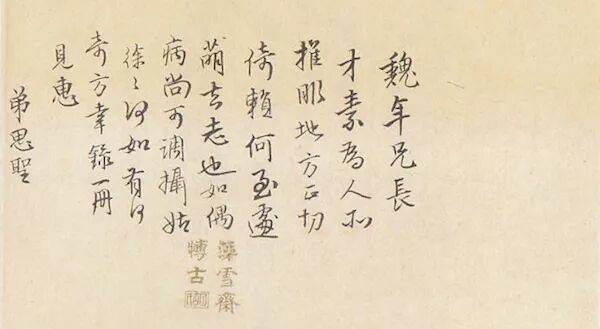 魏年兄長
才素為人所
推服地方正切
倚賴何至遽
萌去志也如偶
病尚可調攝姑
徐〻何如有何
奇方幸錄一冊
見惠
弟思聖
藻雪齋
博古